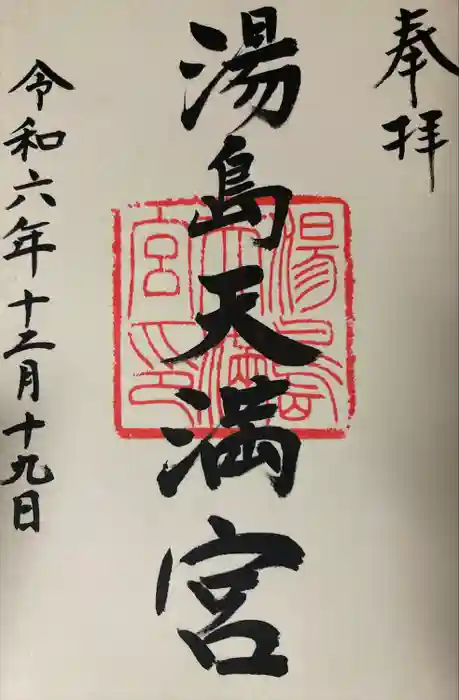 奉拝
湯島天満宮
湯島
天満
宮印
令和六年十二月十九日